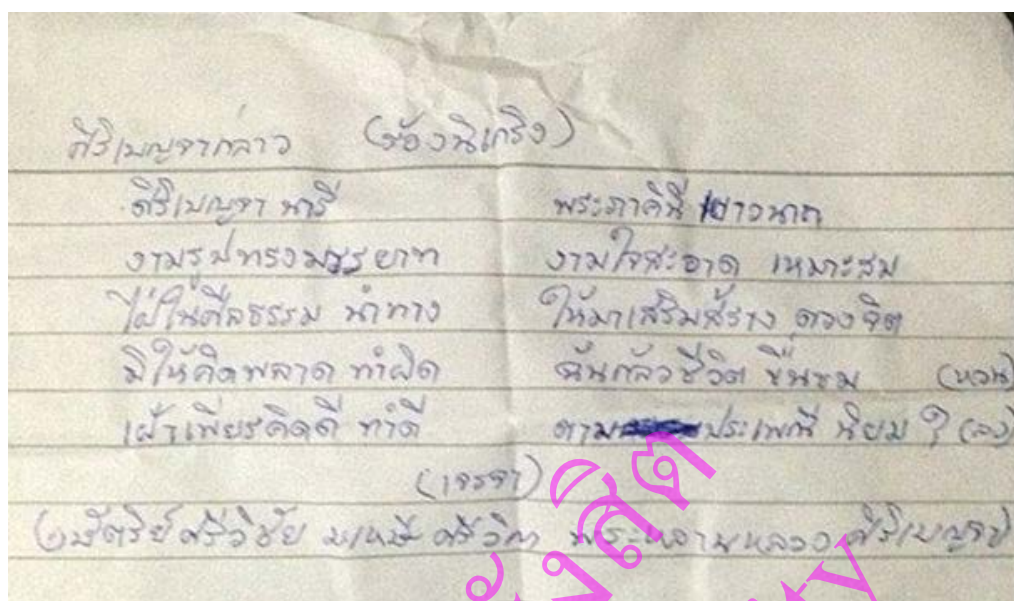 ศิริเบญจากล่าว (ร้องนิเกริง)
ศิริเบญจา นารี พระภาคินี
งามรูปทรงมรรยาท งามใจสะอาด เหมาะสม
ใฝ่ในศีลธรรม นำทาง ให้มาเสริมสร้าง ดวงจิต
มิให้คิดพลาด ทำผิด ฉันกลัวชีวิต ขื่นขม (หวน)
เฝ้าเพียรคิดดี ทำดี ตามประเพณี นิยม ๆ (ลง)
(เจรจา)
ศรีวิชัย มเหษี ศรีวิภา ศิริเบญจา